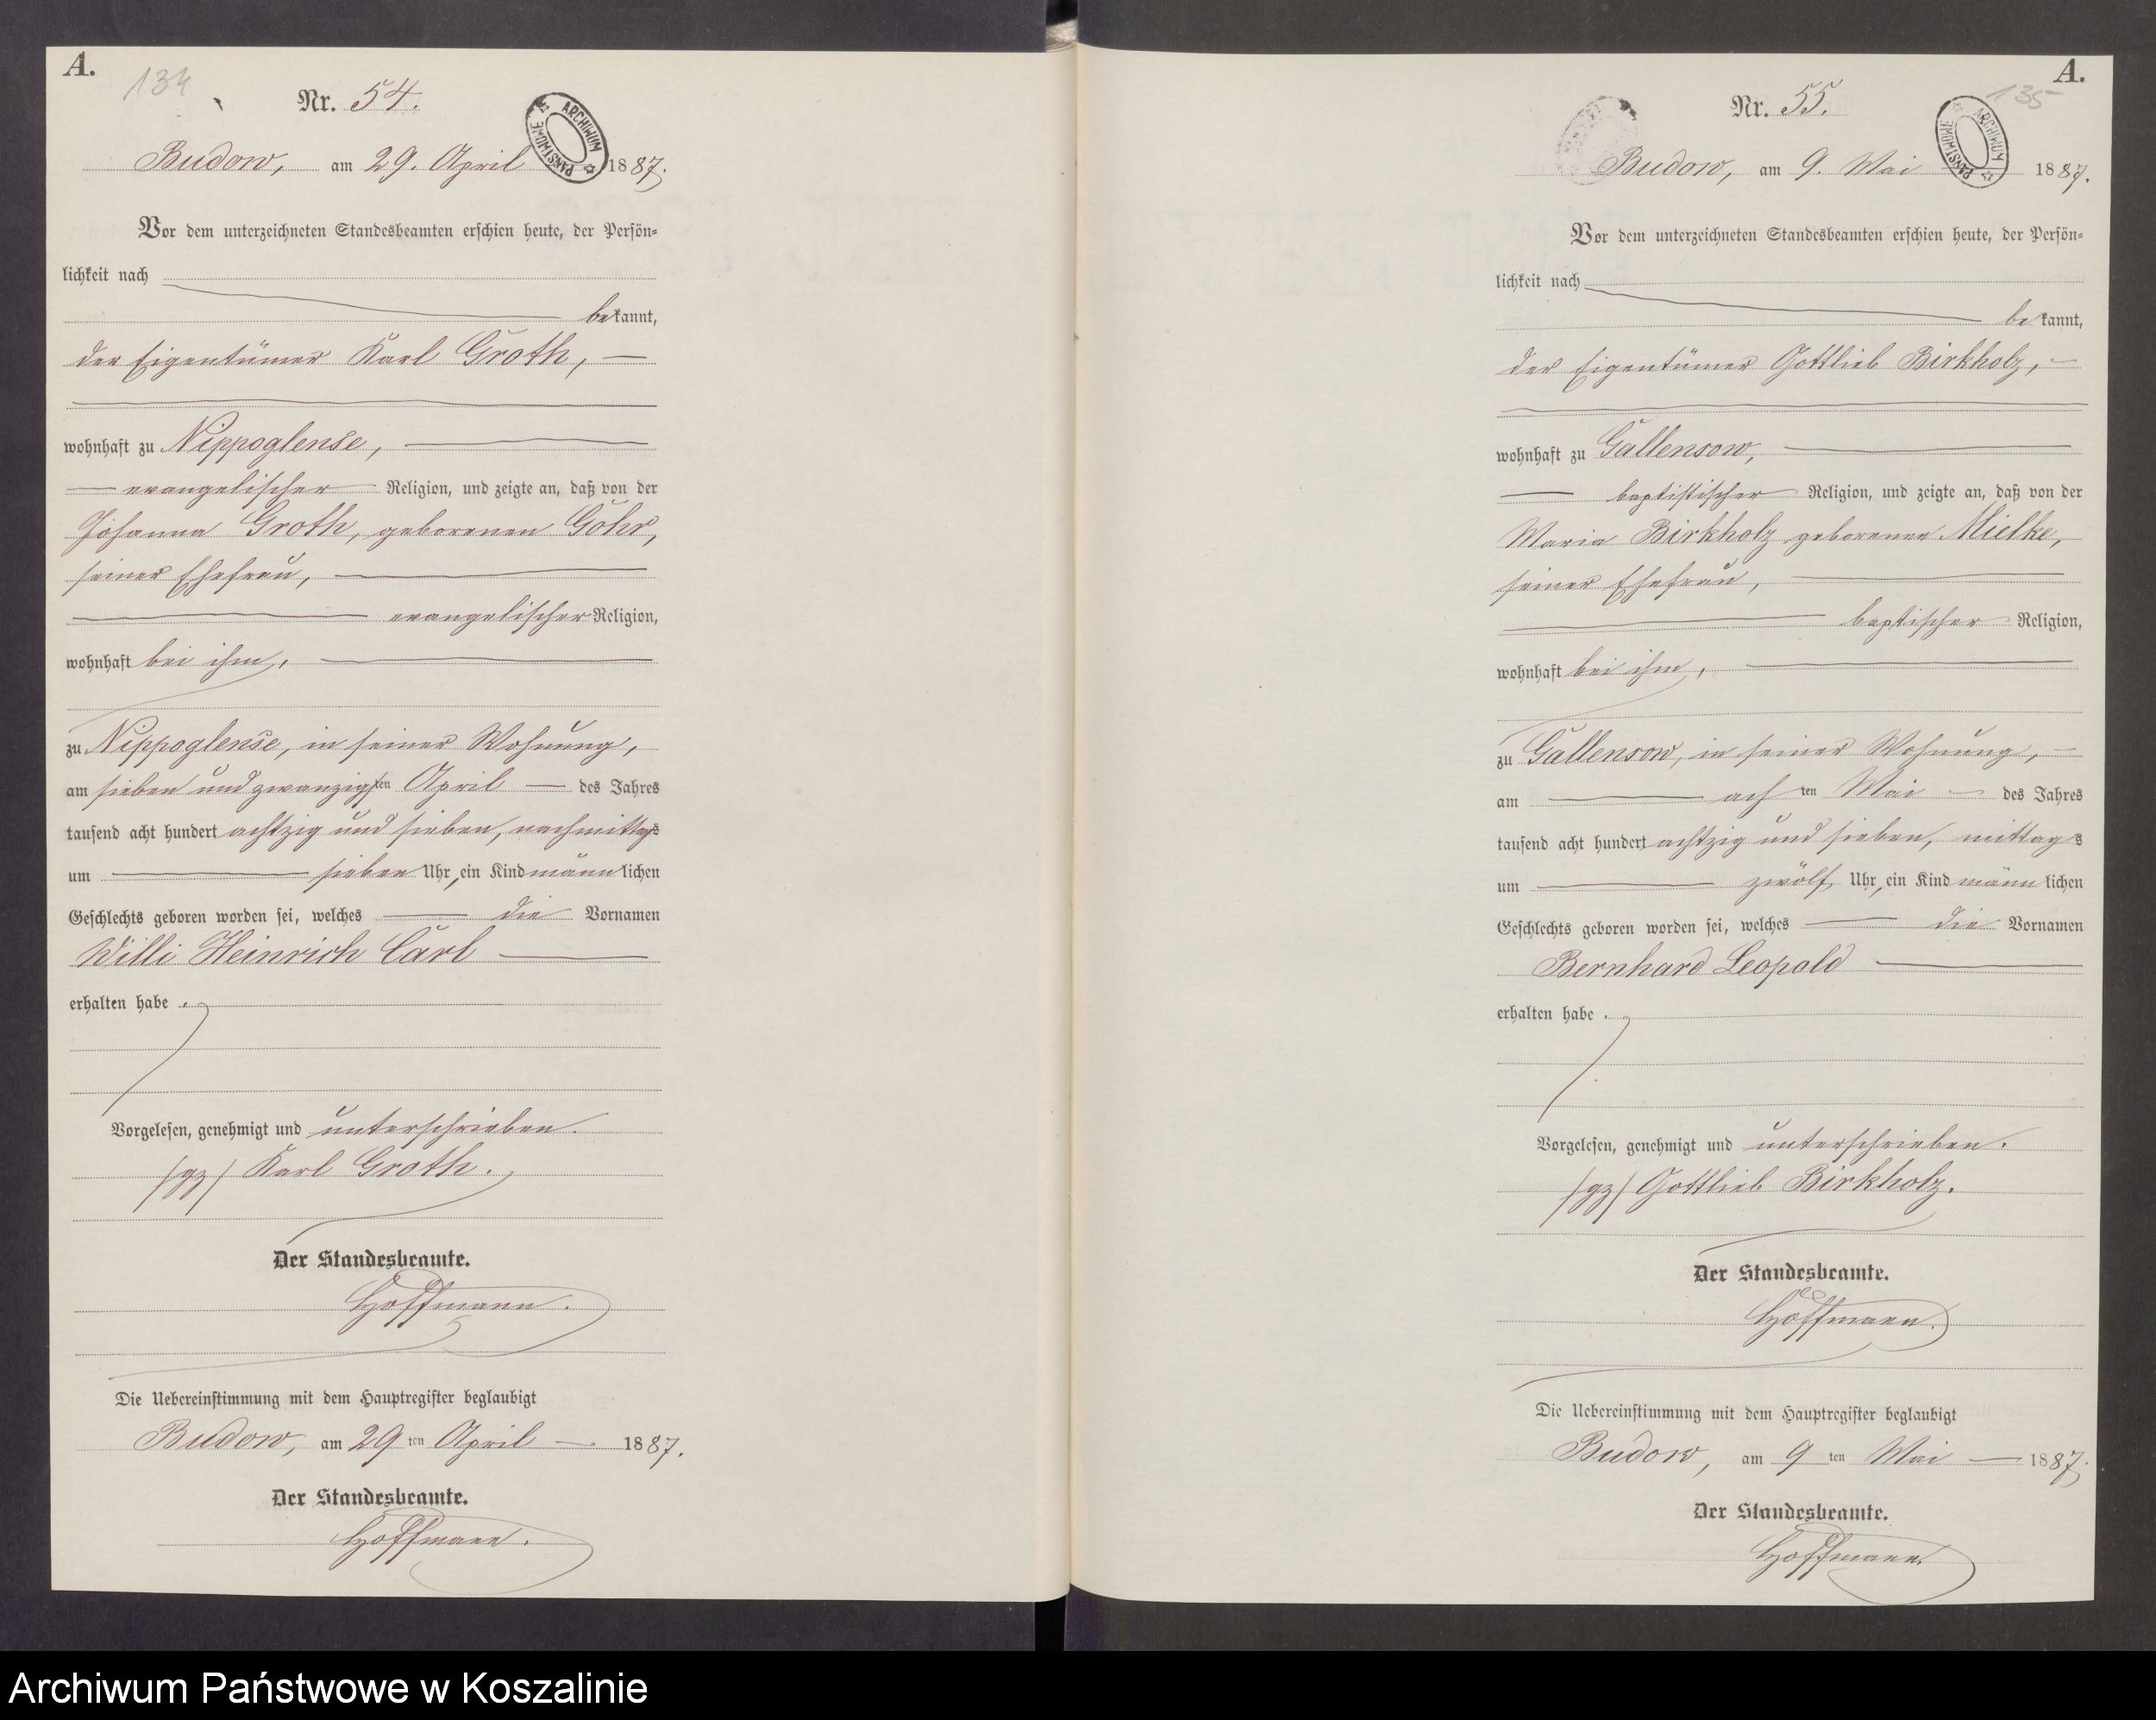 A.
134
Nr. 54.
ARCHIWUM PAŃSTWOWE
Budow, am 29. April 1887.
Vor dem unterzeichneten Standesbeamten erschien heute, der Persön-
lichkeit nach
bekannt,
der Eigentümer Karl Groth,
wohnhaft zu Nippoglense,
evangelischer Religion, und zeigte an, daß von der
Johanna Groth, geborenen Gohr,
seiner Ehefrau,
evangelischer Religion,
wohnhaft bei ihm,
zu Nippoglense, in seiner Wohnung,
am sieben und zwanzigsten April des Jahres
tausend acht hundert achtzig und sieben, nachmittags
um sieben Uhr, ein Kind männlichen
Geschlechts geboren worden sei, welches die Vornamen
Willi Heinrich Carl
erhalten habe.
Vorgelesen, genehmigt und unterschrieben.
/gz/ Karl Groth.
Der Standesbeamte.
Hoffmann.
Die Uebereinstimmung mit dem Hauptregister beglaubigt
Budow, am 29ten April 1887.
Der Standesbeamte.
Hoffmann.
A.
135
Nr. 55.
ARCHIWUM PAŃSTWOWE
Budow, am 9. Mai 1887.
Vor dem unterzeichneten Standesbeamten erschien heute, der Persön-
lichkeit nach
bekannt,
der Eigentümer Gottlieb Birkholz,
wohnhaft zu Gallensow,
baptistischer Religion, und zeigte an, daß von der
Maria Birkholz geborenen Mielke,
seiner Ehefrau,
baptischer Religion,
wohnhaft bei ihm,
zu Gallensow, in seiner Wohnung,
am achten Mai des Jahres
tausend acht hundert achtzig und sieben, mittags
um zwölf Uhr, ein Kind männlichen
Geschlechts geboren worden sei, welches die Vornamen
Bernhard Leopold
erhalten habe.
Vorgelesen, genehmigt und unterschrieben.
/gz/ Gottlieb Birkholz.
Der Standesbeamte.
Hoffmann.
Die Uebereinstimmung mit dem Hauptregister beglaubigt
Budow, am 9ten Mai 1887.
Der Standesbeamte.
Hoffmann.
Archiwum Państwowe w Koszalinie